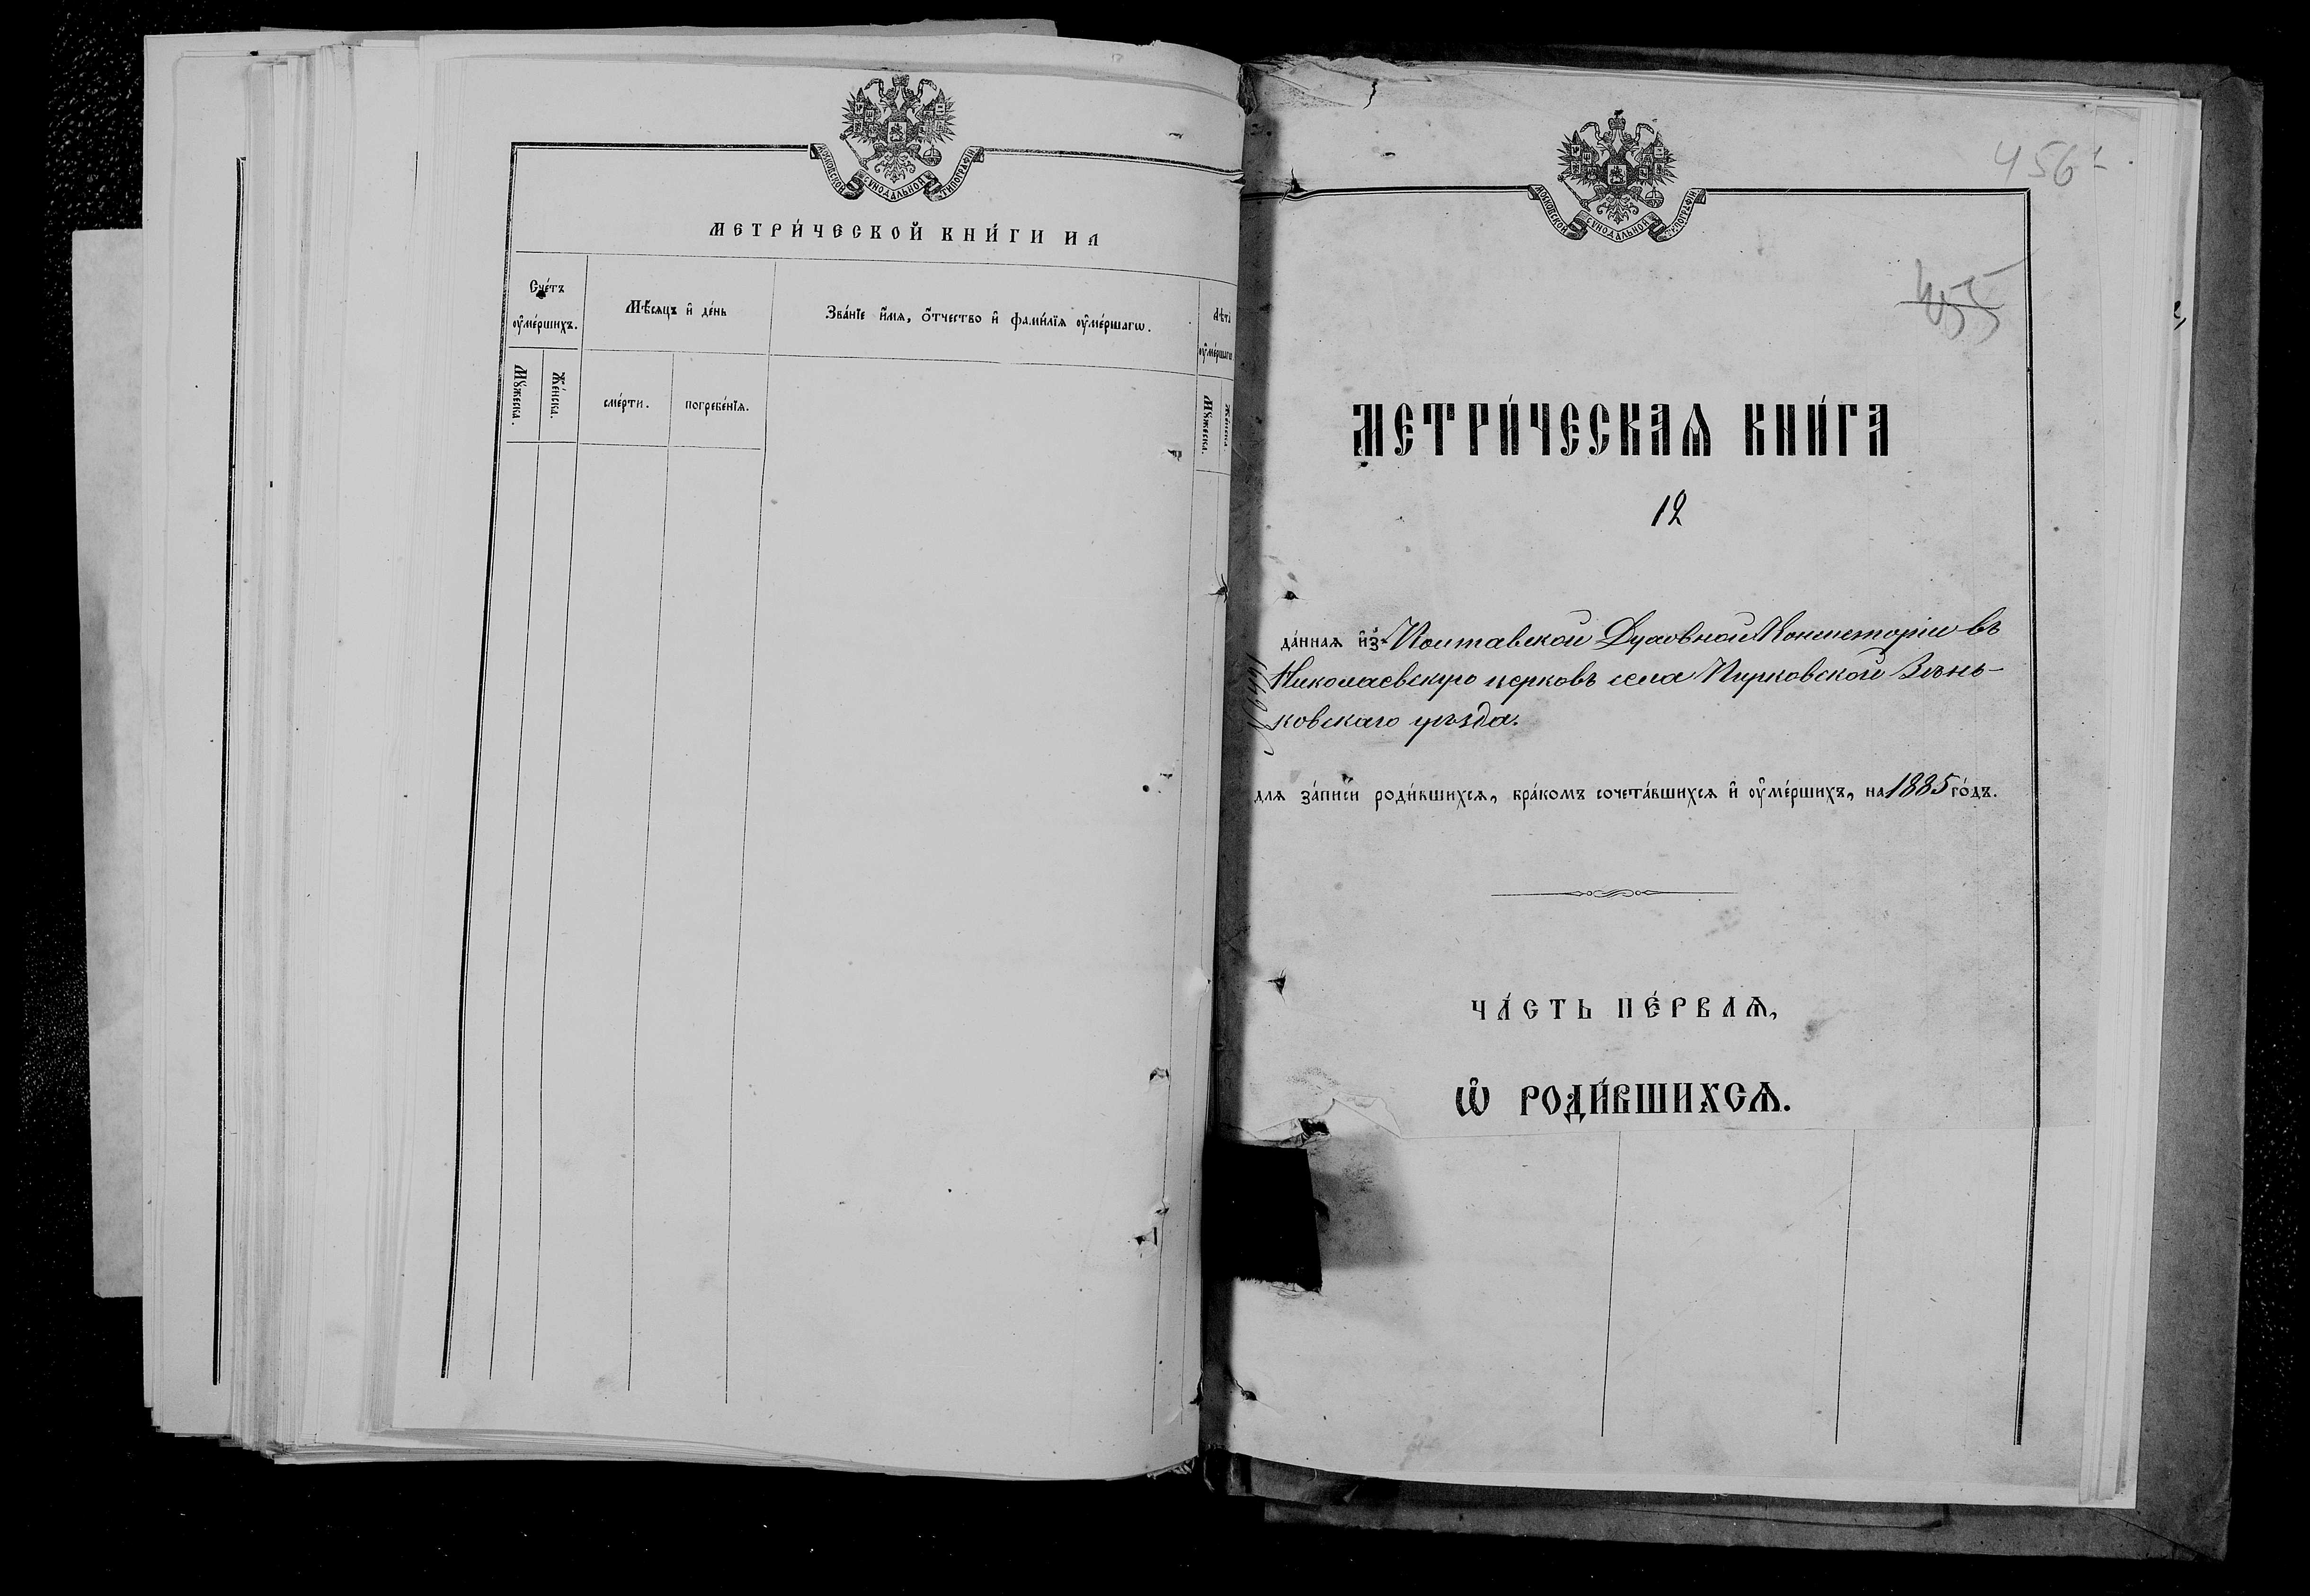 МОСКОВСКОЙ СѴНОДАЛЬНОЙ ТИПОГРАФІИ
МЕТРИ́ЧЕСКОЙ КНИ́ГИ НА
Сче́тъ
ᲂу҆ме́ршихъ.
Мѣ́сяцъ и҆ де́нь
Зва́нїе и҆́мя, ѻ҆́тчество и҆ фами́лїя ᲂу҆ме́ршагѡ.
Лѣ́та
ᲂу҆ме́ршагѡ
Мꙋ́жеска.
Же́нска.
сме́рти.
погребе́нїя.
Мꙋ́жеска.
Же́нска.
МОСКОВСКОЙ СѴНОДАЛЬНОЙ ТИПОГРАФІИ
456
455
МЕТРИ́ЧЕСКАѦ КНИ́ГА
12
да́нная и҆з̾ Полтавской Духовной Консисторіи въ
Николаевскую церковь села Пирковской Зѣнь-
ковскаго уѣзда.
для за́писи роди́вшихся, бра́комъ сочета́вшихся и҆ ᲂу҆ме́ршихъ, на 1885 го́дъ.
ЧА́СТЬ ПЕ́РВАѦ,
Ѡ҆ РОДИ́ВШИХСѦ.